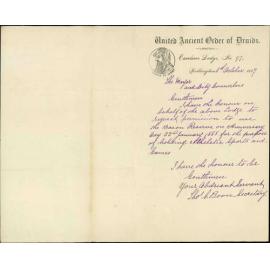 United Ancient Order of Druids.
Camden Lodge, No. 97.
October 1887
The Mayor
and City Councillors
Gentlemen
I have the honour on
behalf of the above Lodge to
request permission to use
the Moore Reserve on Anniversary
day 23rd January 1888 for the purpose
of holding Athletic Sports and
Games
I have the honour to be
Gentlemen
Your Obedient Servant,
Thos. C. Boon Secretary